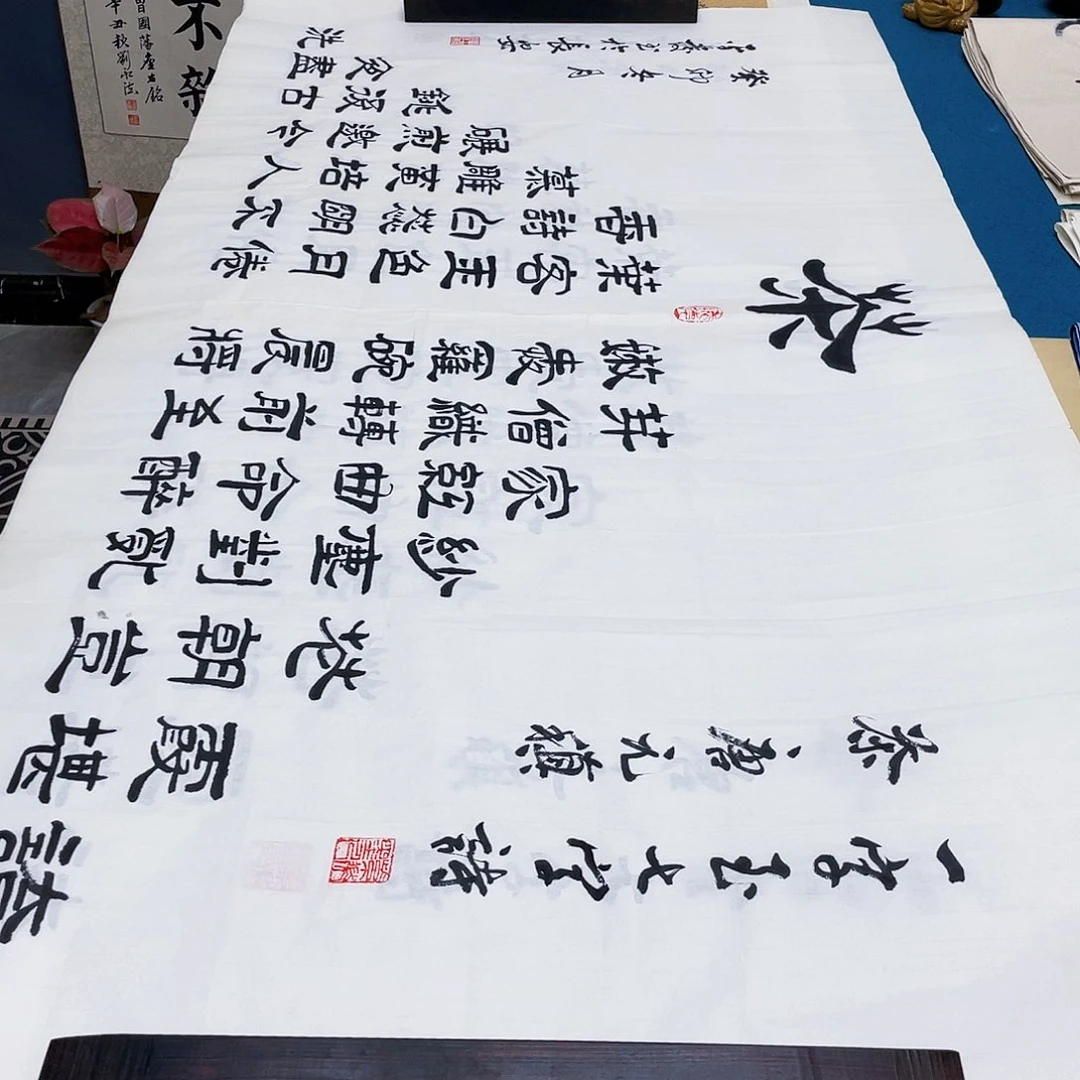 茶
香葉 嫩芽
慕詩客 愛僧家
碾雕白玉 羅織紅紗
銚煎黃蕊色 碗轉曲塵花
夜後邀陪明月 晨前命對朝霞
洗盡古今人不倦 將至醉亂豈堪誇
一字至七字詩
茶、唐元稹
癸卯冬月
書於長安
不雜
曾國藩座右銘
辛丑秋劉